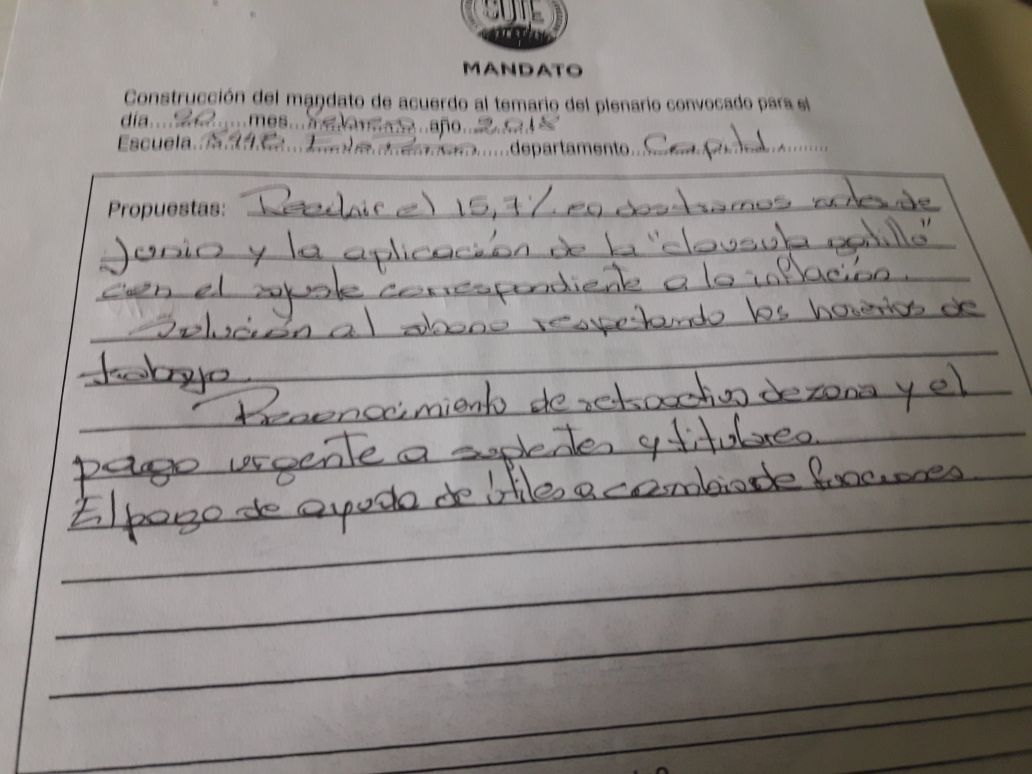 SUTE
MANDATO
Construcción del mandato de acuerdo al temario del plenario convocado para el
día....20......mes...febrero...año...2.018
Escuela...............departamento...Capital...........
Propuestas: Recibir el 15,7% en dos tramos antes de
Junio y la aplicación de la "clausula gatillo"
con el ajuste correspondiente a la inflación.
Solución al abono respetando los horarios de
trabajo.
Reconocimiento de retroactivo de zona y el
pago urgente a suplentes y titulares.
El pago de ayuda de útiles a cambio de funciones.